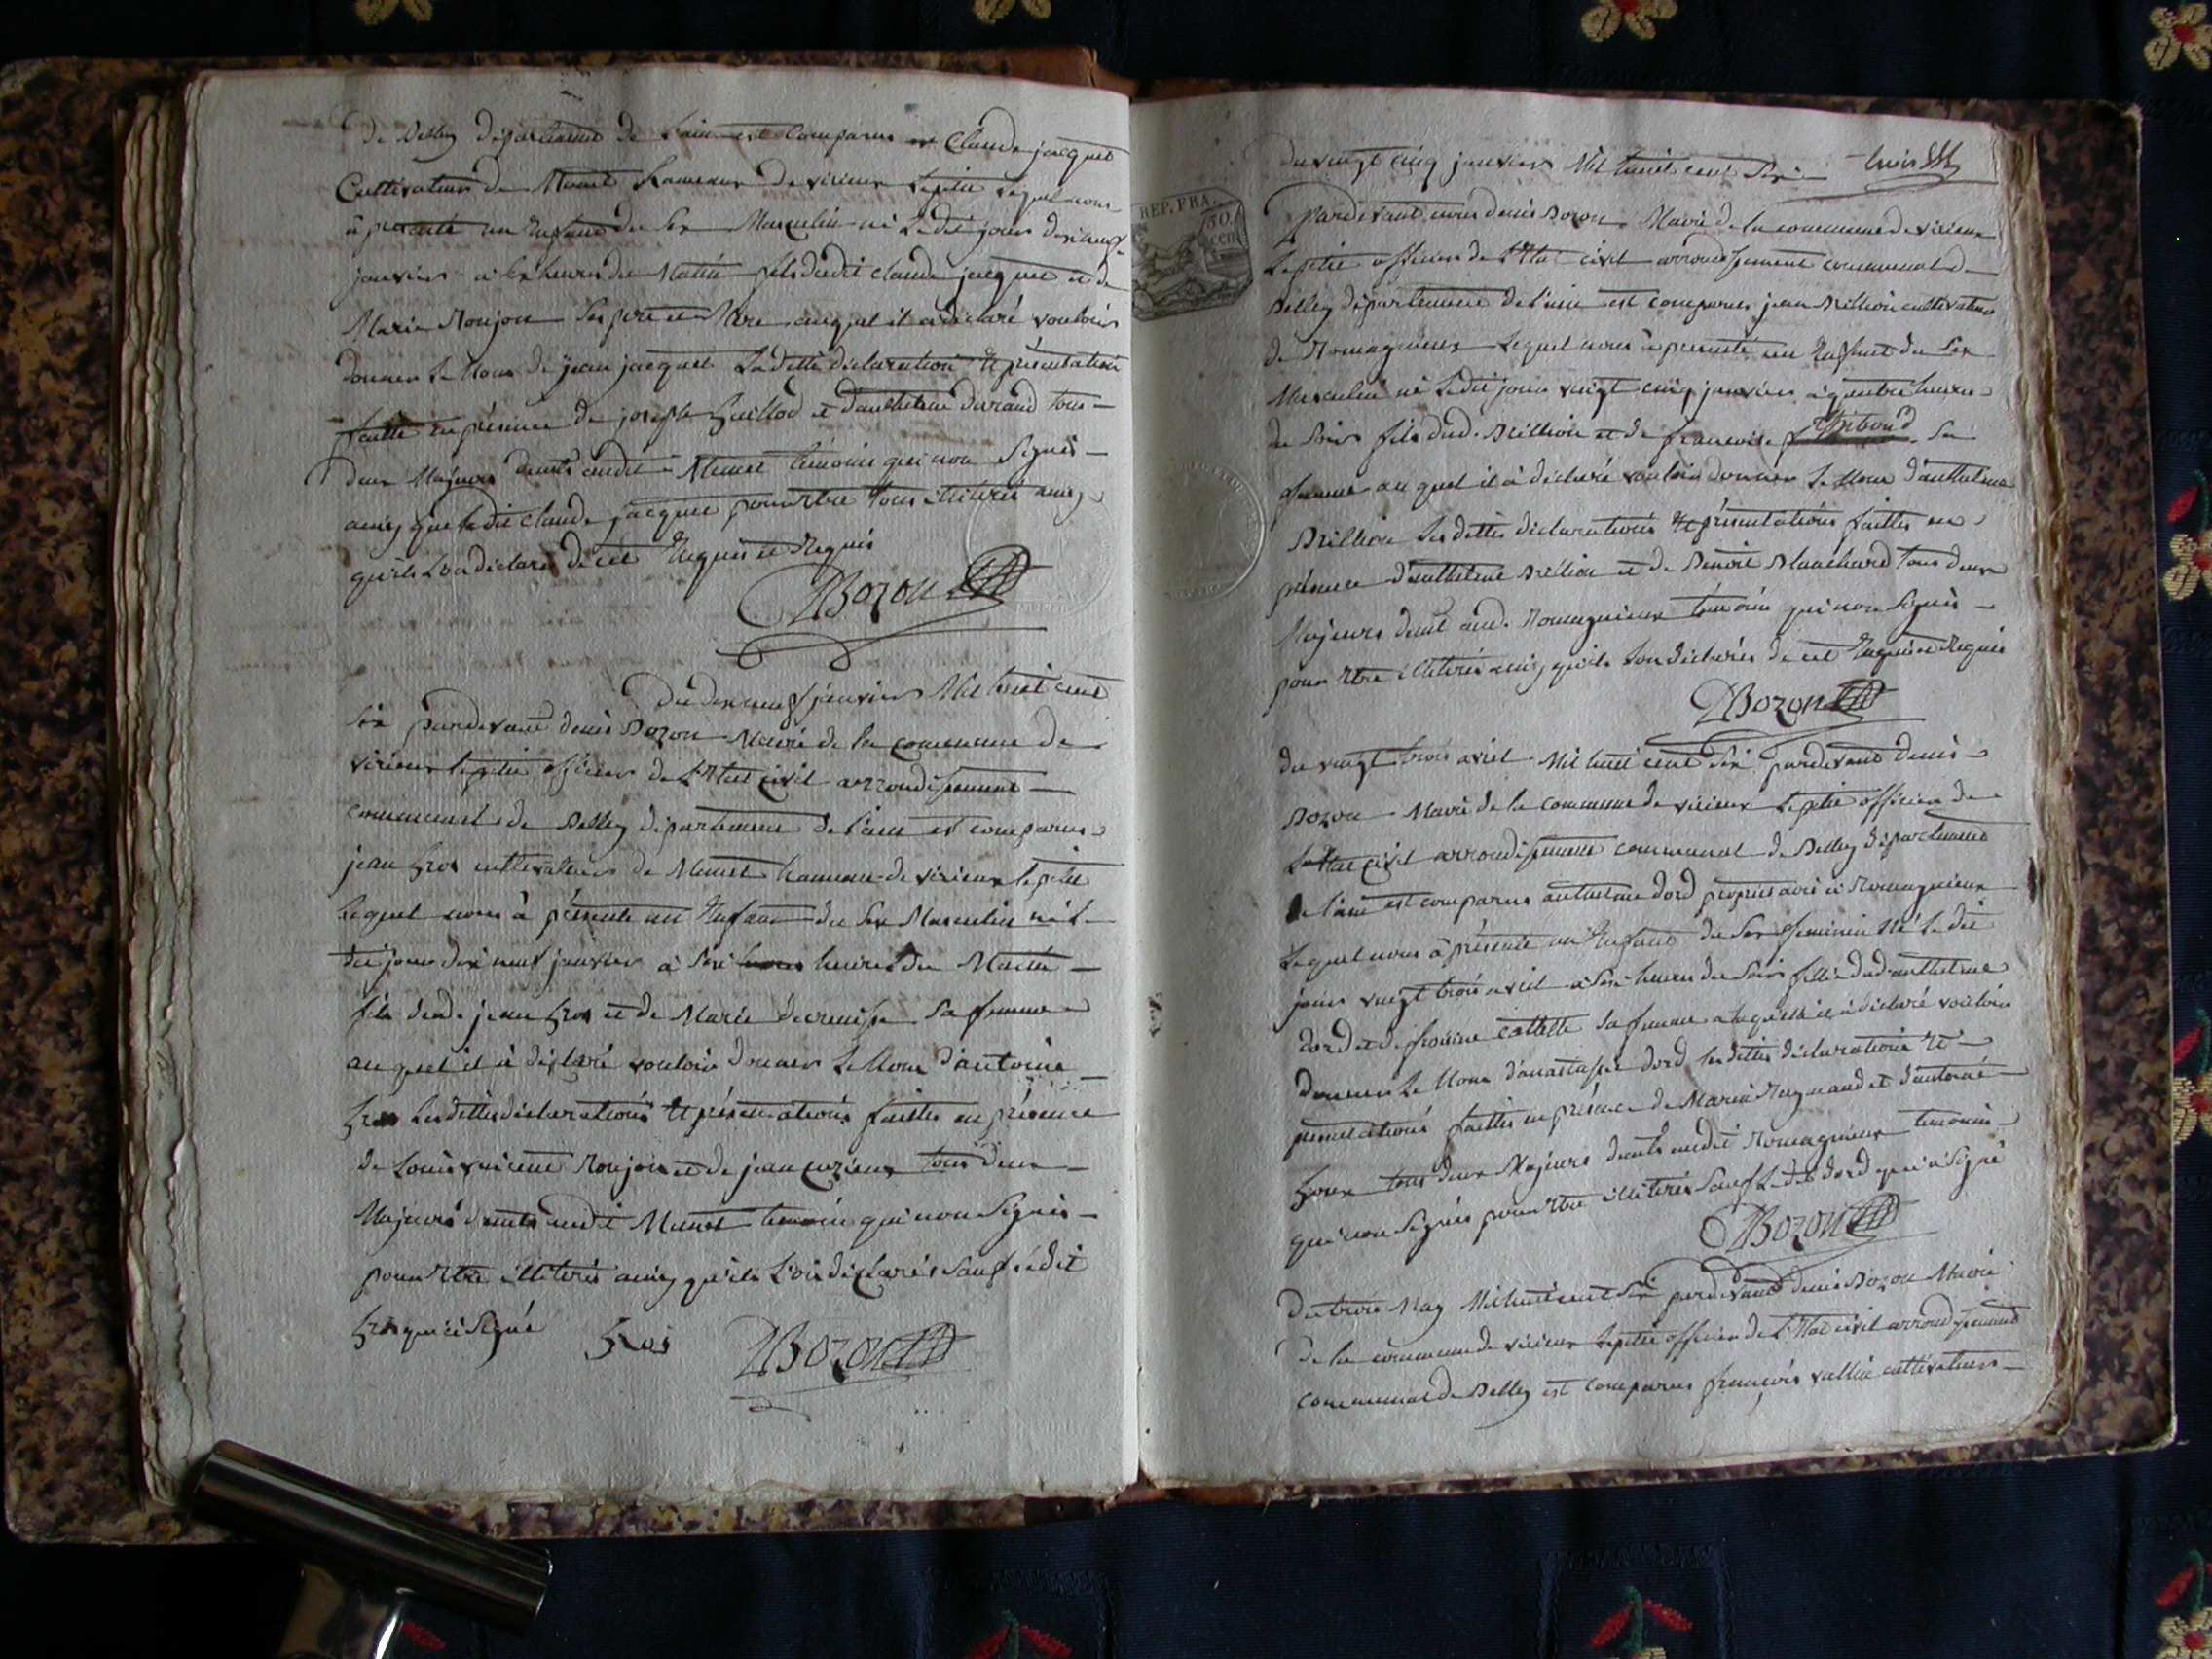 de Belley département de l'ain est comparus Claude jacquet
Cultivateur de Munet hameaux de virieux Lepetit lequel nous
à présenté un Enfant du Sex Masculin né Ledit jour dixneuf
janvier à heures du Matin fils dudit claude jacquet et de
Marie Monjou Ses pere et Mere auquel il à déclaré vouloir
donner Le Nom de jean jacquet Laditte déclaration Et présentation
faitte en présence de joseph Guillod et d'anthelme durand tous
deux Majeurs demt audit Munet témoins qui non Signés
ainsy que le dit claude jacquet pour Etre tous illiterés ainsy
quils Lon déclaré de cet Enquis et Requis
DBozon
du dix neuf janvier Mil huit cent
Six pardevant denis Bozon Mairé de la commune de
virieux lepetit officier de L'Etat Civil arrondissement
communal de Belley département de l'ain est comparus
jean Gros cultivateur de Munet hameau de virieux le petit
lequel nous à présenté un Enfant du Sex Masculin né L
dit jour dix neuf janvier à Six heures du Matin
fils dud. jean Gros et de Marie Sa femme
au quel il à déclaré vouloir donner Le Nom d'antoine
Gros Lesdittes déclarations Et présentations faittes en présence
de Louis vincent Monjou et de jean tous deux
Majeurs demts audit Munet temoins qui non Signés
pour Etre illiterés ainsy qu'ils L'on déclarés Sauf ledit
Gros qui à Signé
Gros DBozon
du vingt cinq janvier Mil huit cent Six
trois
REP. FRA.
50
cent
Pardevant nous denis Bozon Mairé de la commune de virieux
Lepetit officier de L'Etat civil arrondissement communal de
Belley département de l'ain est comparus jean Billion cultivateur
de Romagnieux Lequel nous à presenté un Enfant du Sex
Masculin né Ledit jour vingt cinq janvier à quatre heures
du Soir fils dud. Billion et de francoise Sa
femme au quel il à déclaré vouloir donner Le Nom d'anthelme
Billion Les dittes déclarations Et présentations faittes en
présence d'anthelme Billion et de Benoit Blanchard tous deux
Majeurs demt aud. Romagnieux témoins qui non Signés
pour Etre illiterés ainsy qu'ils Lon déclarés de cet Enquis et Requis
DBozon
du vingt trois avril Mil huit cent Six pardevant denis
Bozon Mairé de la commune de virieux Lepetit officier de
L'Etat civil arrondissement communal de Belley département
de l'ain est comparus anthelme dord propriétaire à Romagnieux
Lequel nous à présenté un Enfant du Sex feminin Né Le dit
jour vingt trois avril à Six heures du Soir fille dud anthelme
dord et de Sa femme à laquelle il à déclaré vouloir
donner Le Nom d'anastasie dord les dittes déclarations Et
présentations faittes en présence de Marin Reynaud et d'antoine
tous deux Majeurs demts audit Romagnieux temoins
qui non Signés pour Etre illiterés Sauf Ledit dord qui à Signé
DBozon
Du trois May Mil huit cent Six pardevant denis Bozon Mairé
de la commune de virieux Lepetit officier de L'Etat civil arrondissement
communal de Belley est comparus françois vallin cultivateur